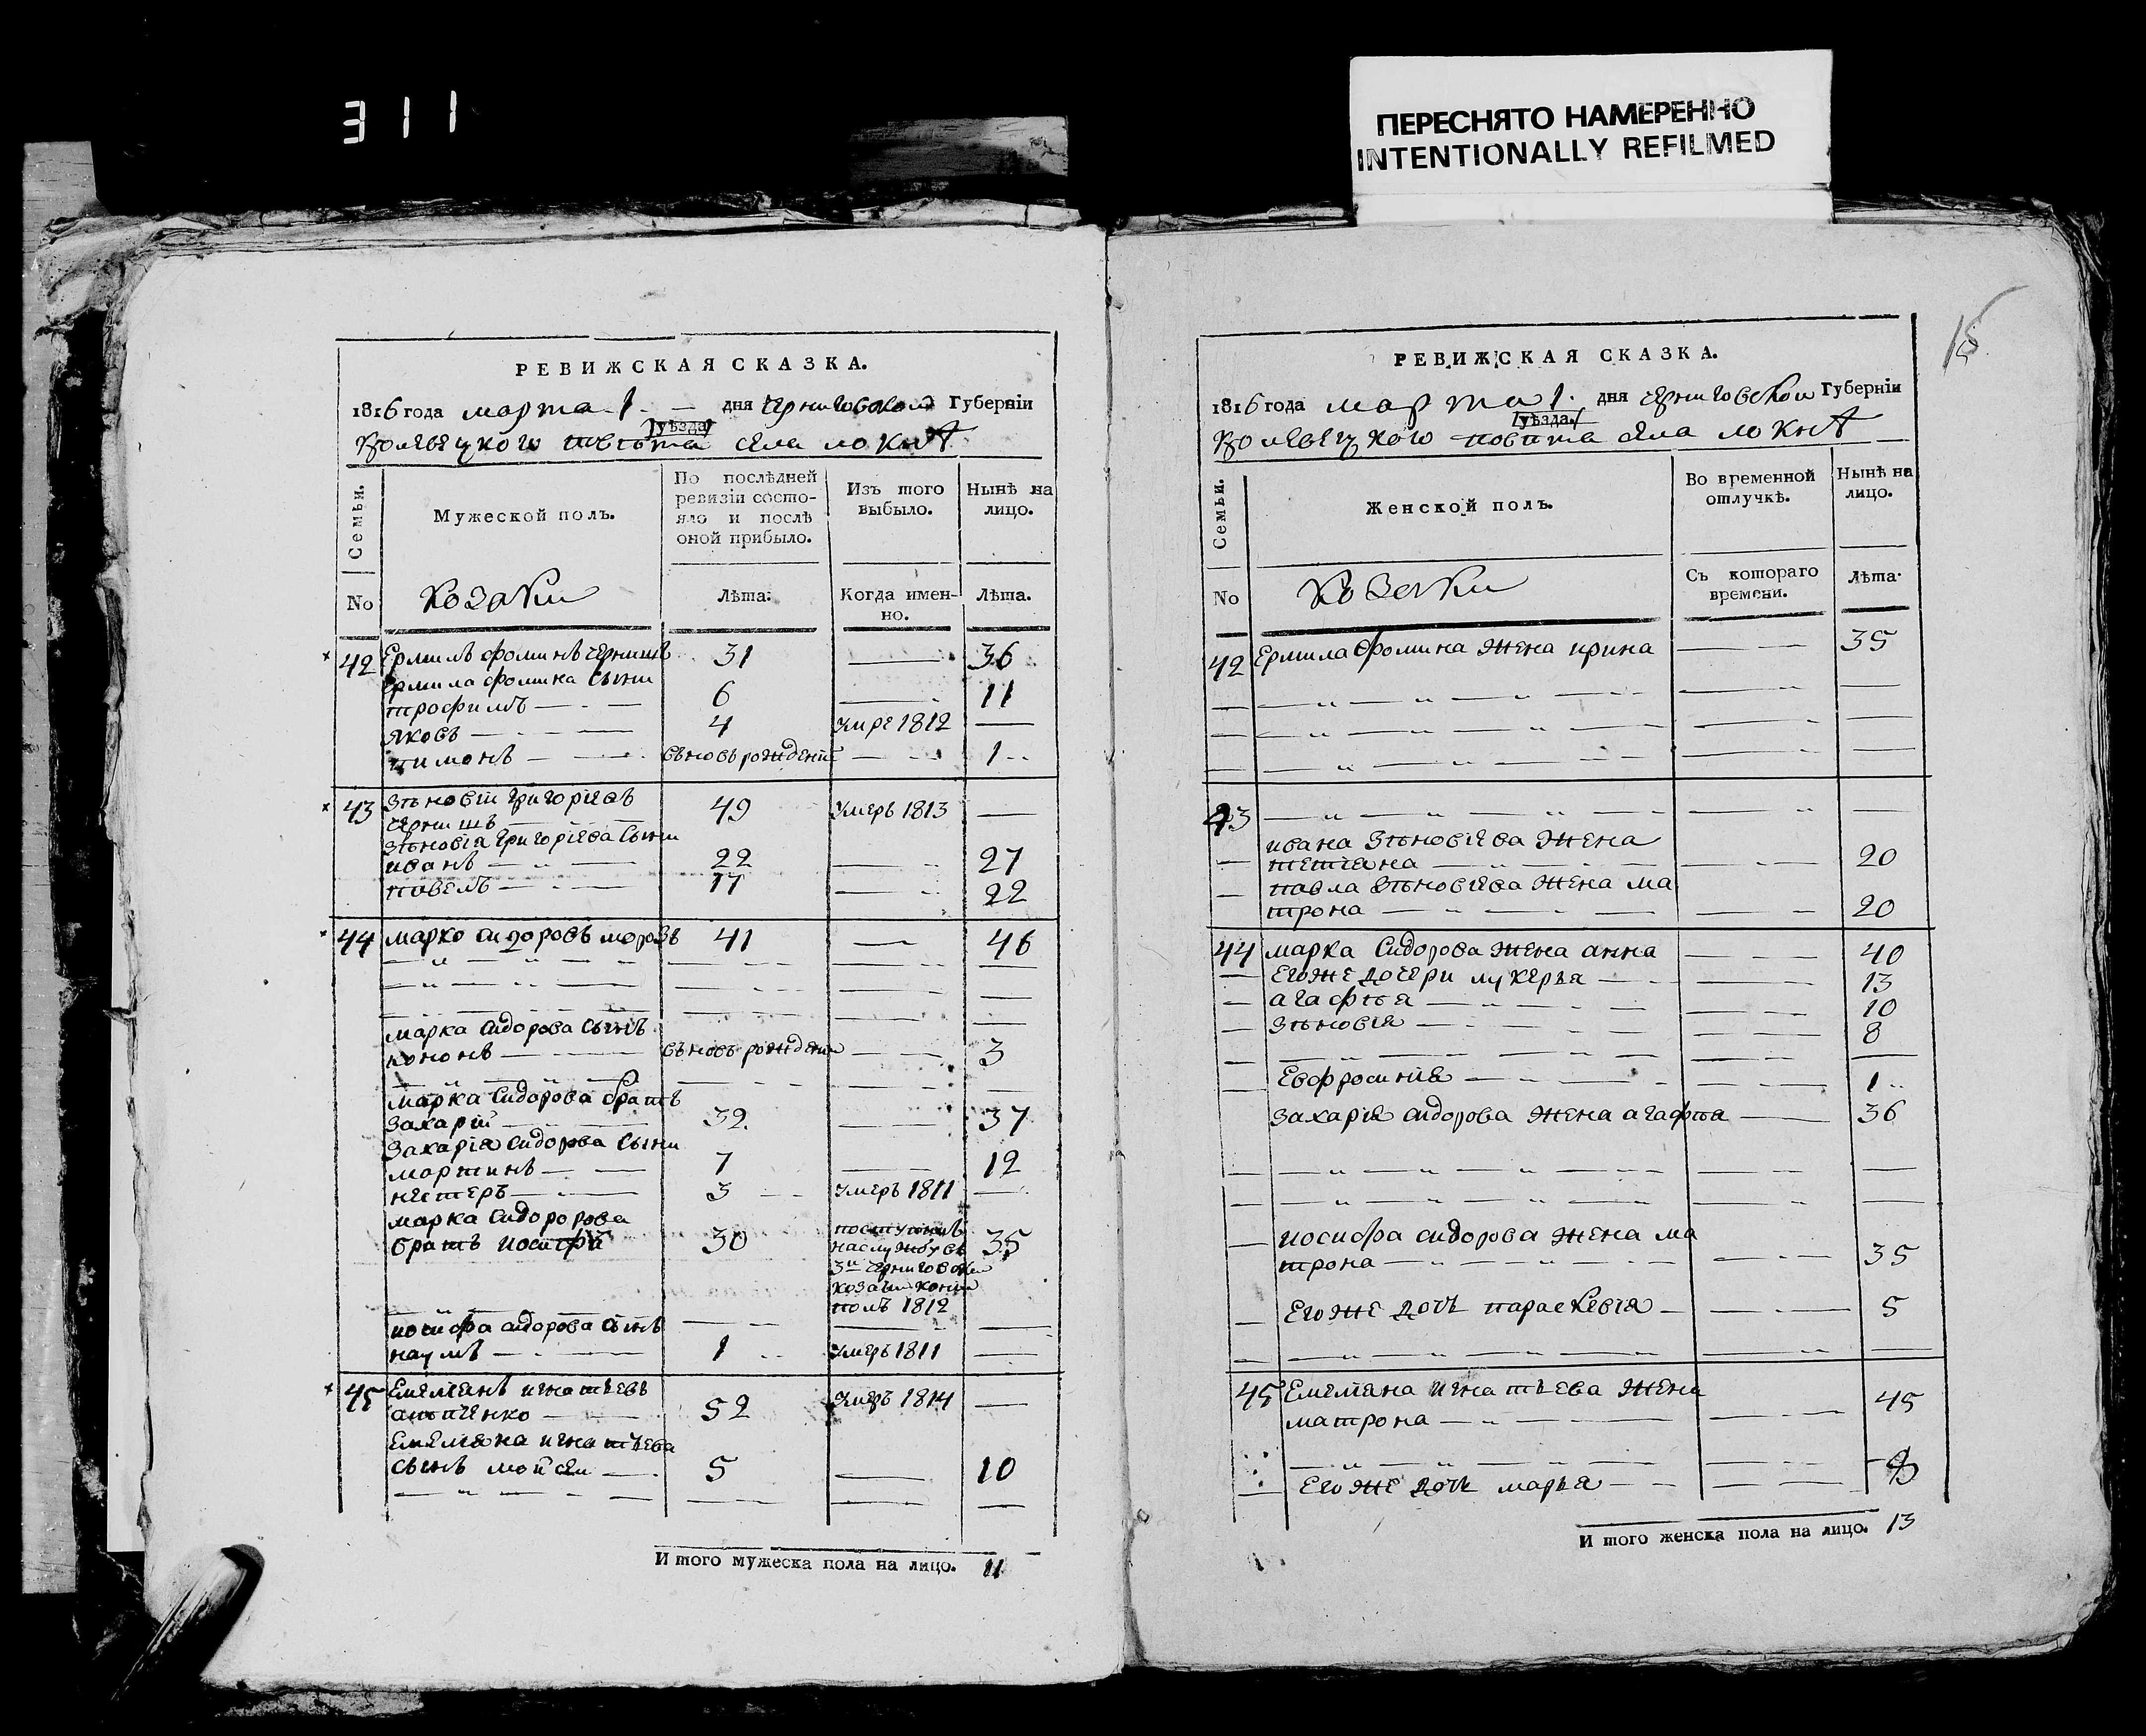 311
ПЕРЕСНЯТО НАМЕРЕННО
INTENTIONALLY REFILMED
РЕВИЖСКАЯ СКАЗКА.
1816 года марта 1. дня Черниговской Губерніи
уѣзда
Кролевецкого повѣта села локнѧ
Семьи.
Мужеской полъ.
По послѣдней ревизіи состо-
яло и послѣ
оной прибыло.
Изъ того
выбыло.
Нынѣ на
лицо.
No
Козаки
Лѣта.
Когда имен-
но.
Лѣта.
42 Ермилъ фоминъ чернишъ 31 36
Ермила фомина сыни
трофимъ 6 11
яковъ 4 умре 1812
пимонъ вновь рожденъ 1
43 Зѣновій григоріевъ
чернишъ 49 Умеръ 1813
Зѣновія григоріева сыни
иванъ 22 27
павелъ 17 22
44 марко сидоровъ морозъ 41 46
марка сидорова сынъ
кононъ вновь рожденъ 3
марка сидорова братъ
захарій 32 37
Захарія сидорова сыни
мартинъ 7 12
нестеръ 3 умеръ 1811
марка сидоророва
братъ иосифъ 30 35
поступилъ
на службу въ
3й черниговски
козачи конни
полъ 1812
иосифа сидорова сынъ
наумъ 1 Умеръ 1811
45 Емелянъ игнатьевъ
52 Умеръ 1814
Емеляна игнатьева
сынъ мойсеи 5 10
И того мужеска пола на лицо. 11
15
РЕВИЖСКАЯ СКАЗКА.
1816 года марта 1. дня черниговской Губерніи
уѣзда
Кролевецкого повѣта села локнѧ
Семьи.
Женской полъ.
Во временной
отлучкѣ.
Нынѣ на
лицо.
No
Козаки
Съ котораго
времени.
Лѣта.
42 Ермила Фомина жена ирина 35
43
ивана Зѣновіева жена
тетіяна 20
павла Зѣновіева жена ма
трона 20
44 марка Сидорова жена анна 40
Егоже дочери лукерья 13
агафія 10
Зѣновія 8
Евфросинія 1
Захарія сидорова жена агафія 36
иосифа сидорова жена ма
трона 35
Егоже дочъ параскевія 5
45 Емеляна игнатьева жена
матрона 45
Егоже дочъ марья
И того женска пола на лицо. 13